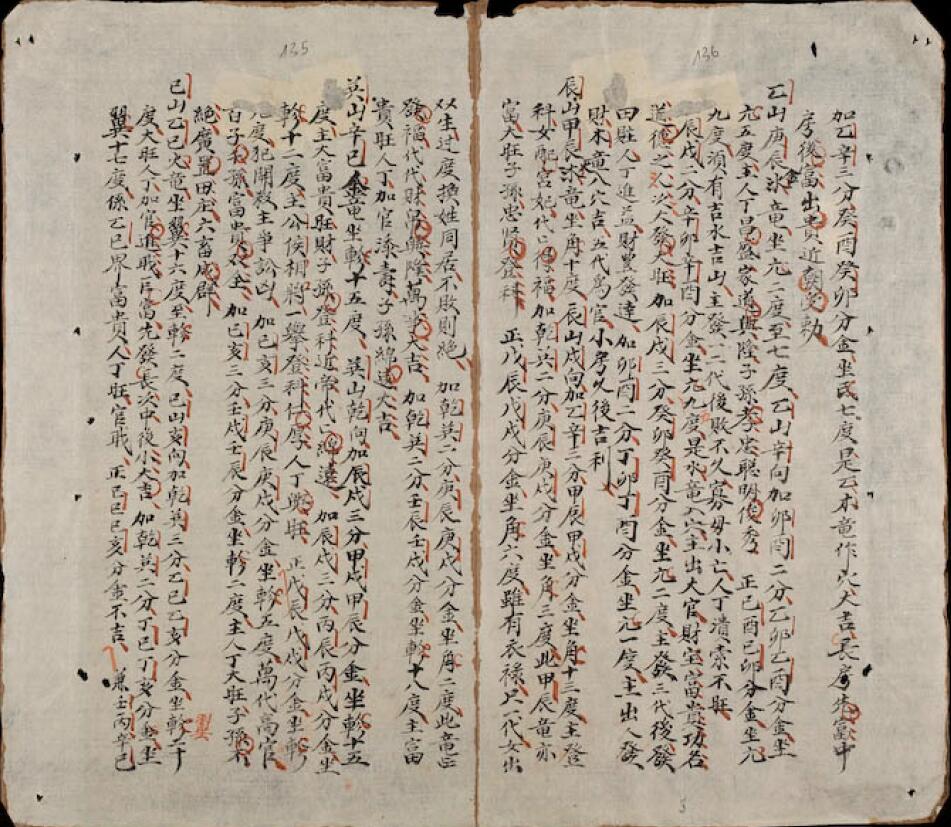 136
加乙辛三分癸酉癸卯分金坐氐七度是乙木竜作穴大吉長房先富中
房後富出貴近朝受勅
乙山庚辰氷竜坐亢二度至七度乙山辛向加卯酉二分乙卯乙酉分金坐
亢五度主人丁昌盛家道興隆子孫孝忠聰明俊秀 正己酉己卯分金坐亢
九度須有吉水吉山主發一二代後敗不久寡母小亡人丁潰索不旺
辰戌二分辛卯辛酉分金坐亢九度是水竜入穴主出大官財宝富貴功名
道德之人次人發大旺加辰戌三分癸卯癸酉分金坐亢二度主發三代後發
曰賍人丁進益財豊發達 加卯酉二分丁卯丁酉分金坐亢一度主出人發
財木竜入穴吉五代為官小房久後吉利
辰山甲辰水竜坐角十度辰山戌向加乙辛三分甲辰甲戌分金坐角十三度主登
科女配宮妃代代得福加乾巽二分庚辰庚戌分金坐角三度此甲辰竜亦
富大旺子孫忠賢登科 正戊辰戊戌分金坐角六度雖有衣禄尺二代女出
135
双生过度換姓同居不敗則絶 加乾巽二分庚辰庚戌分金坐角二度此竜正
發福代代財帛興隆萬事大吉 加乾巽二分壬辰壬戌分金坐軫十八度主富
貴旺人丁加官添壽子孫綿遠大吉
巽山辛巳金竜坐軫十五度 巽山乾向加辰戌三分甲戌甲辰分金坐軫十五
度主大富貴旺財子孫登科近帝代代綿遠 加辰戌三分丙辰丙戌分金坐
軫十二度主公侯相將一舉登科仁厚人丁興旺 正戊辰戊戌分金坐軫
九度犯關殺主爭訟凶 加巳亥三分庚辰庚戌分金坐軫五度萬代高官
百子千孫富貴双全 加巳亥三分壬戌壬辰分金坐軫二度主人丁大旺子孫不
絶廣置田庄六畜成群
巳山乙巳火竜坐翼十六度至軫二度 巳山亥向加乾巽三分乙巳乙亥分金坐軫二十
度大旺人丁加官進戢官富先發長次中後小大吉 加乾巽二分丁巳丁亥分金坐
翼十七度係乙巳界富貴人丁旺官戢 正己巳己亥分金不吉 兼壬丙辛巳
翼